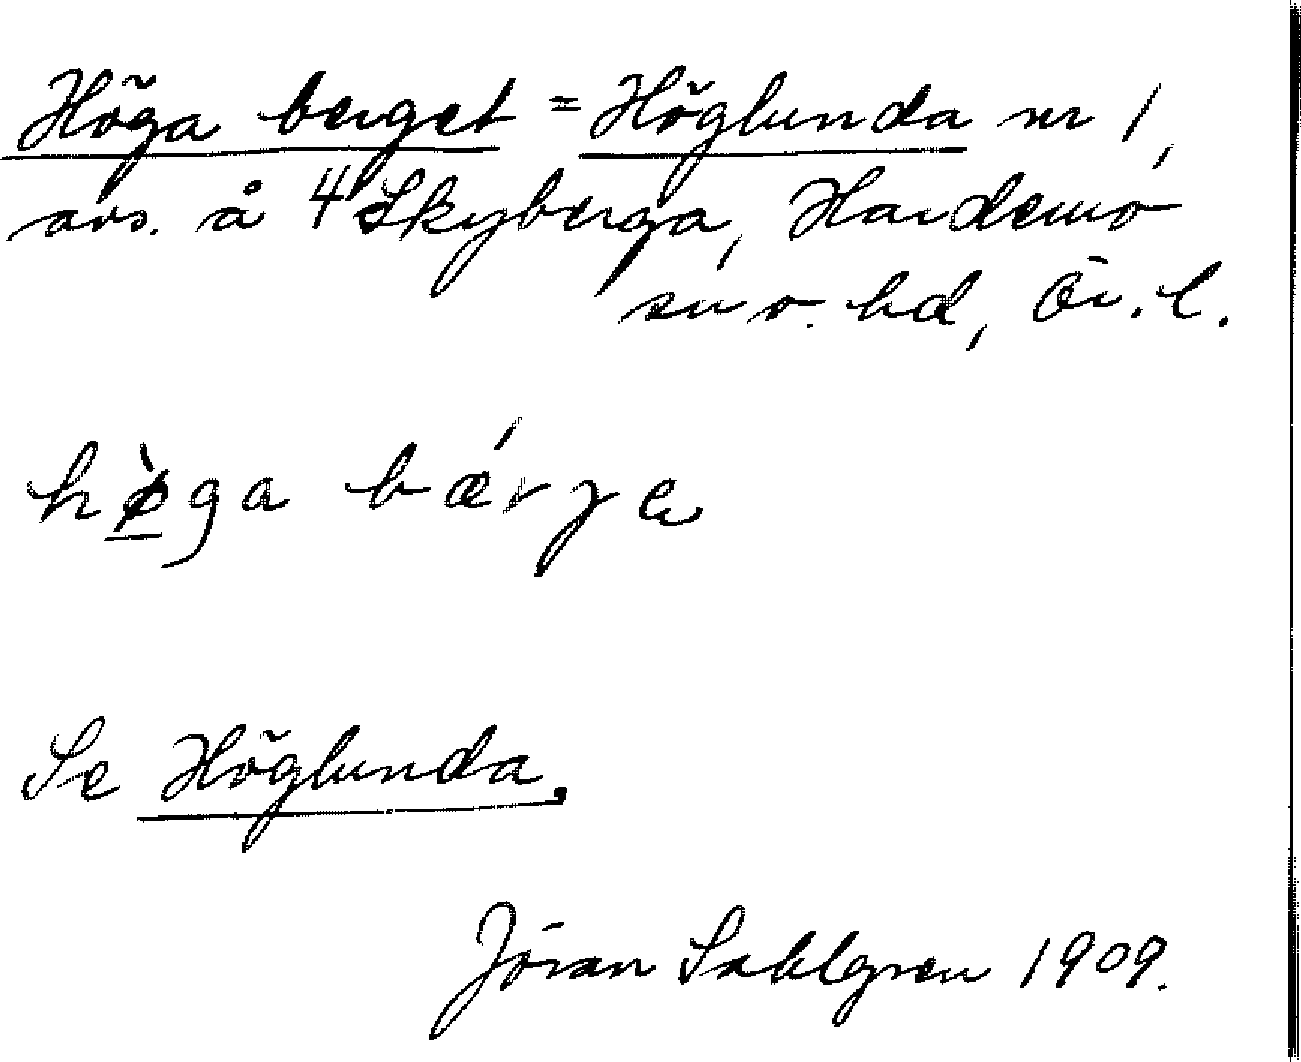 Höga berget = Höglunda nr 1,
avs. å 4 Skyberga, Hardemo
sn o. hd, Ör. l.
hø̀ga bǽrγe
Se Höglunda.
Jöran Sahlgren 1909.